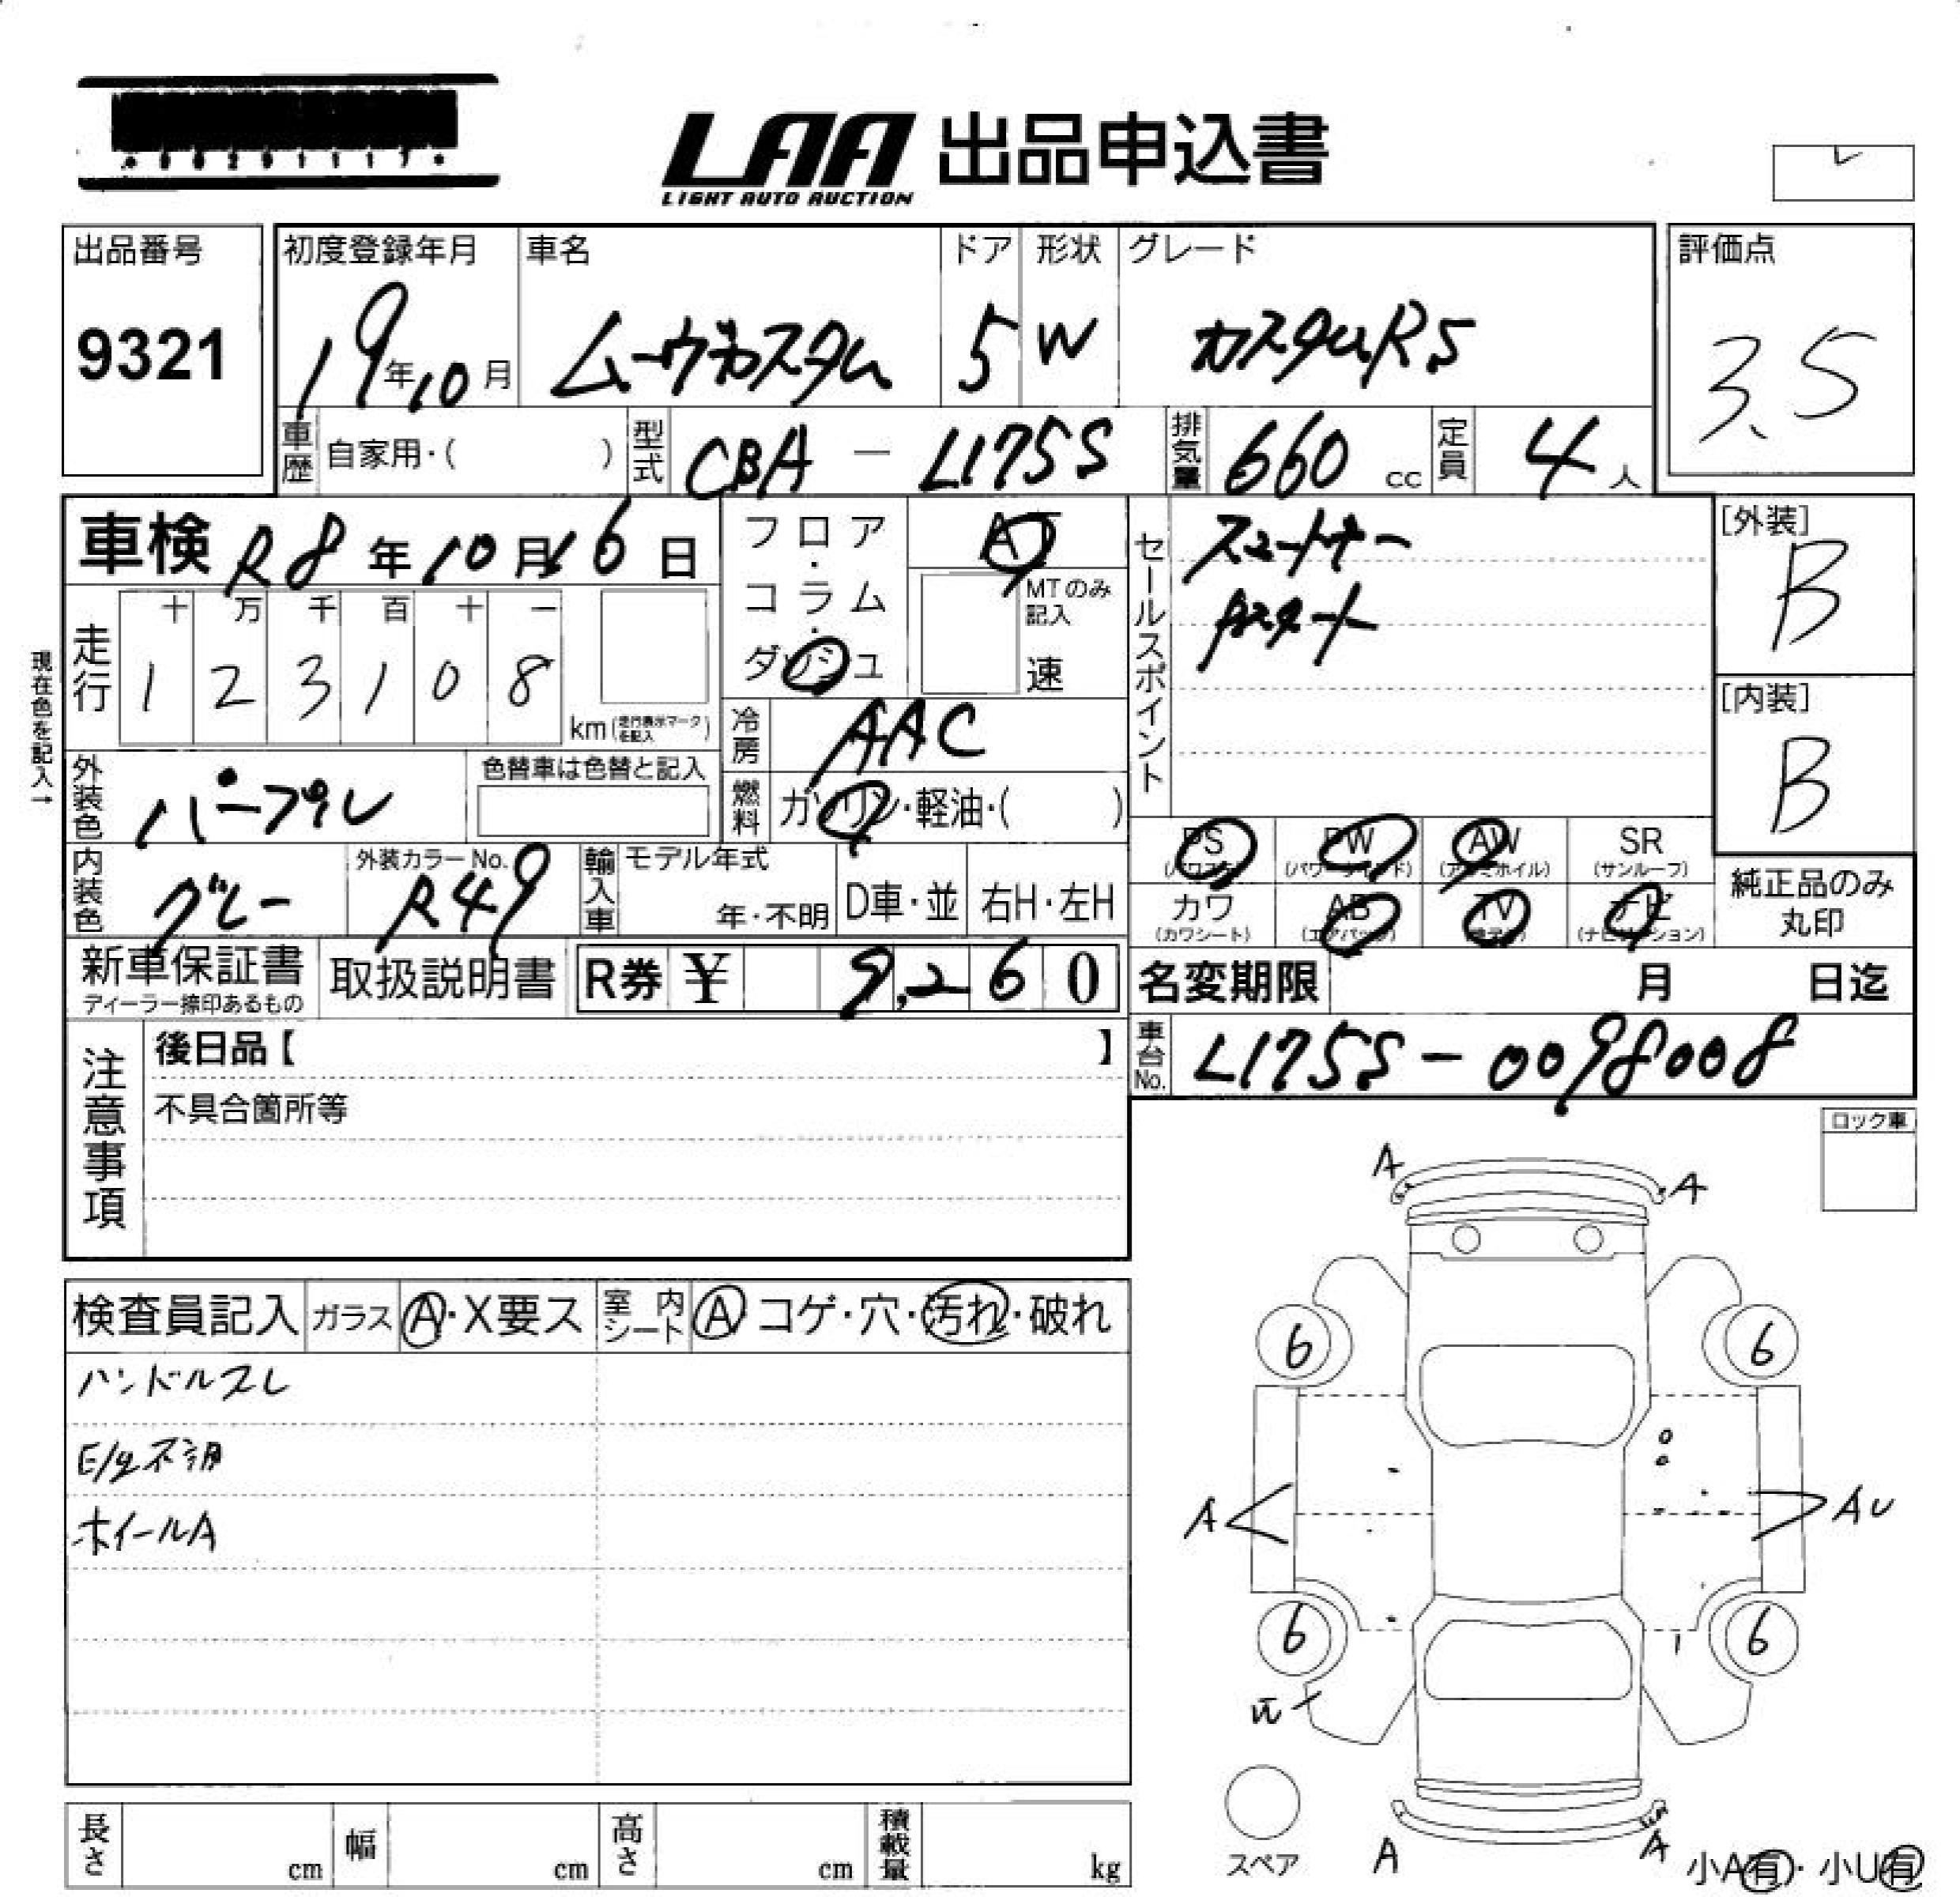 *00201117*
LAA 出品申込書
LIGHT AUTO AUCTION
出品番号
9321
初度登録年月
19年10月
車名
ムーヴカスタム
ドア
5
形状
W
グレード
カスタムRS
評価点
3.5
車歴 自家用・( )
型式 CBA - L175S
排気量 660 cc
定員 4 人
車検 R8年10月16日
フロア・コラム・ダッシュ
AT
MTのみ記入
速
セールスポイント
[外装]
B
[内装]
B
現在色を記入→
走行
十 万 千 百 十 一
1 2 3 1 0 8
km (走行表示マークを記入)
冷房 AAC
燃料 ガソリン・軽油・( )
外装色 パープル
色替車は色替と記入
内装色 グレー
外装カラーNo. R49
輸入車
モデル年式
年・不明
D車・並
右H・左H
PS (パワステ)
PW (パワーウインド)
AW (アルミホイル)
SR (サンルーフ)
カワ (カワシート)
AB (エアバッグ)
TV
ナビ (ナビゲーション)
純正品のみ丸印
新車保証書
ディーラー捺印あるもの
取扱説明書
R券 ¥ 9,260
名変期限 月 日迄
車台No. L175S-0098008
注意事項
後日品【 】
不具合箇所等
ロック車
検査員記入
ガラス A・X要ス
室内シート A コゲ・穴・汚れ・破れ
ハンドルスレ
E/g不調
ホイールA
A A
6 6
A AU
6 6
スペア
A A
小A有・小U有
長さ cm
幅 cm
高さ cm
積載量 kg